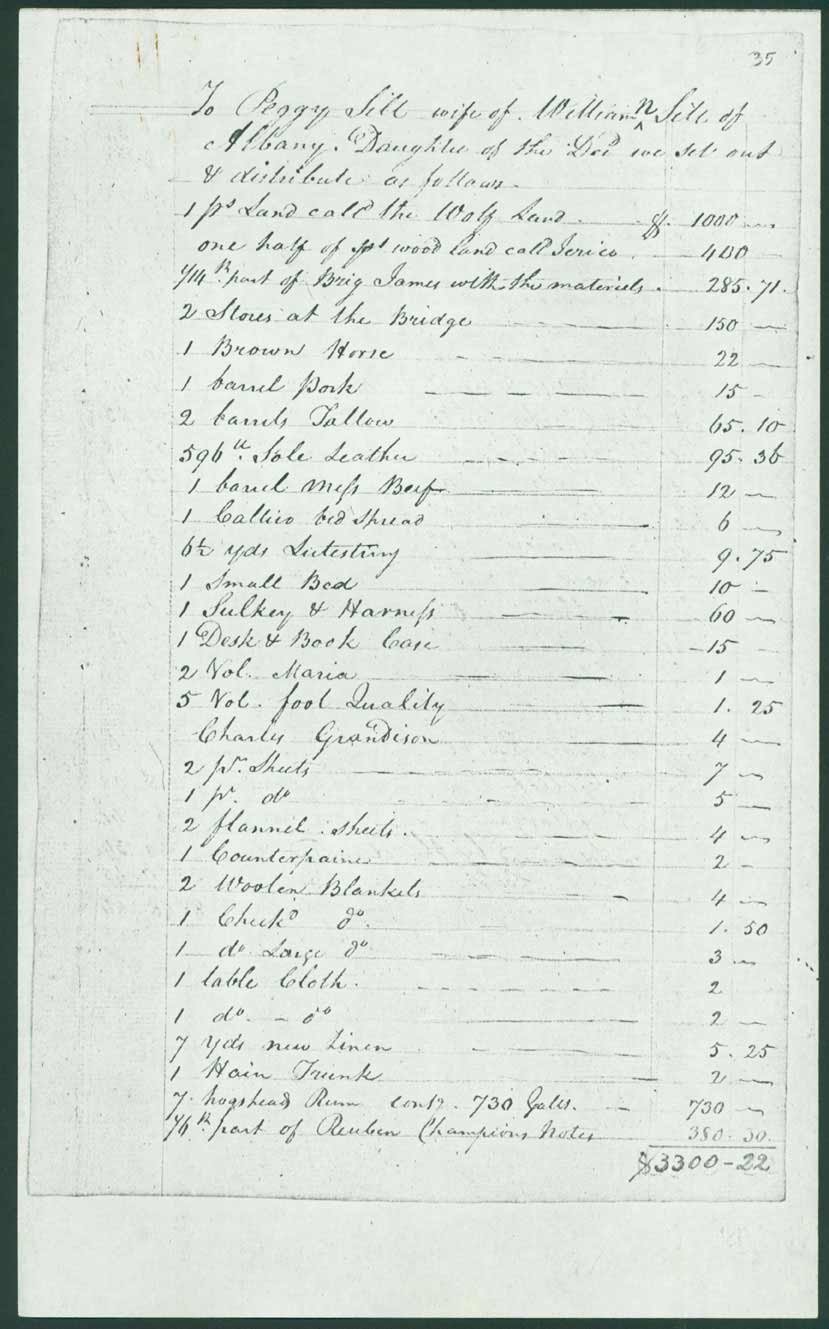 35
To Peggy Sill wife of William N Sill of
Albany. Daughter of the Decd we set out
& distribute as follows
1 ps Land calld the Wolf Land $ 1000
one half of ps wood land call Jerico 400
1/14th part of Brig James with the materiels 285.71
2 Stores at the Bridge 150
1 Brown Horse 22
1 barrel Pork 15
2 barrels Tallow 65.10
596 lb Sole Leather 95.36
1 barrel mess Beef 12
1 Callico bed spread 6
6½ yds Lutestring 9.75
1 Small Bed 10
1 Sulkey & Harness 60
1 Desk & Book Case 15
2 Vol. Maria 1
5 Vol. fool Quality 1.25
Charles Grandison 4
2 pr. Sheets 7
1 pr. do 5
2 flannel sheets. 4
1 Counterpaine 2
2 Woolen Blankets 4
1 Checkd do. 1.50
1 do Large do 3
1 table Cloth. 2
1 do. - do 2
7 yds new Linen 5.25
1 Hair Trunk 2
7 hogsheads Rum 730 Galls. 730
1/6th part of Reuben Champions Notes 380.30
$3300-22